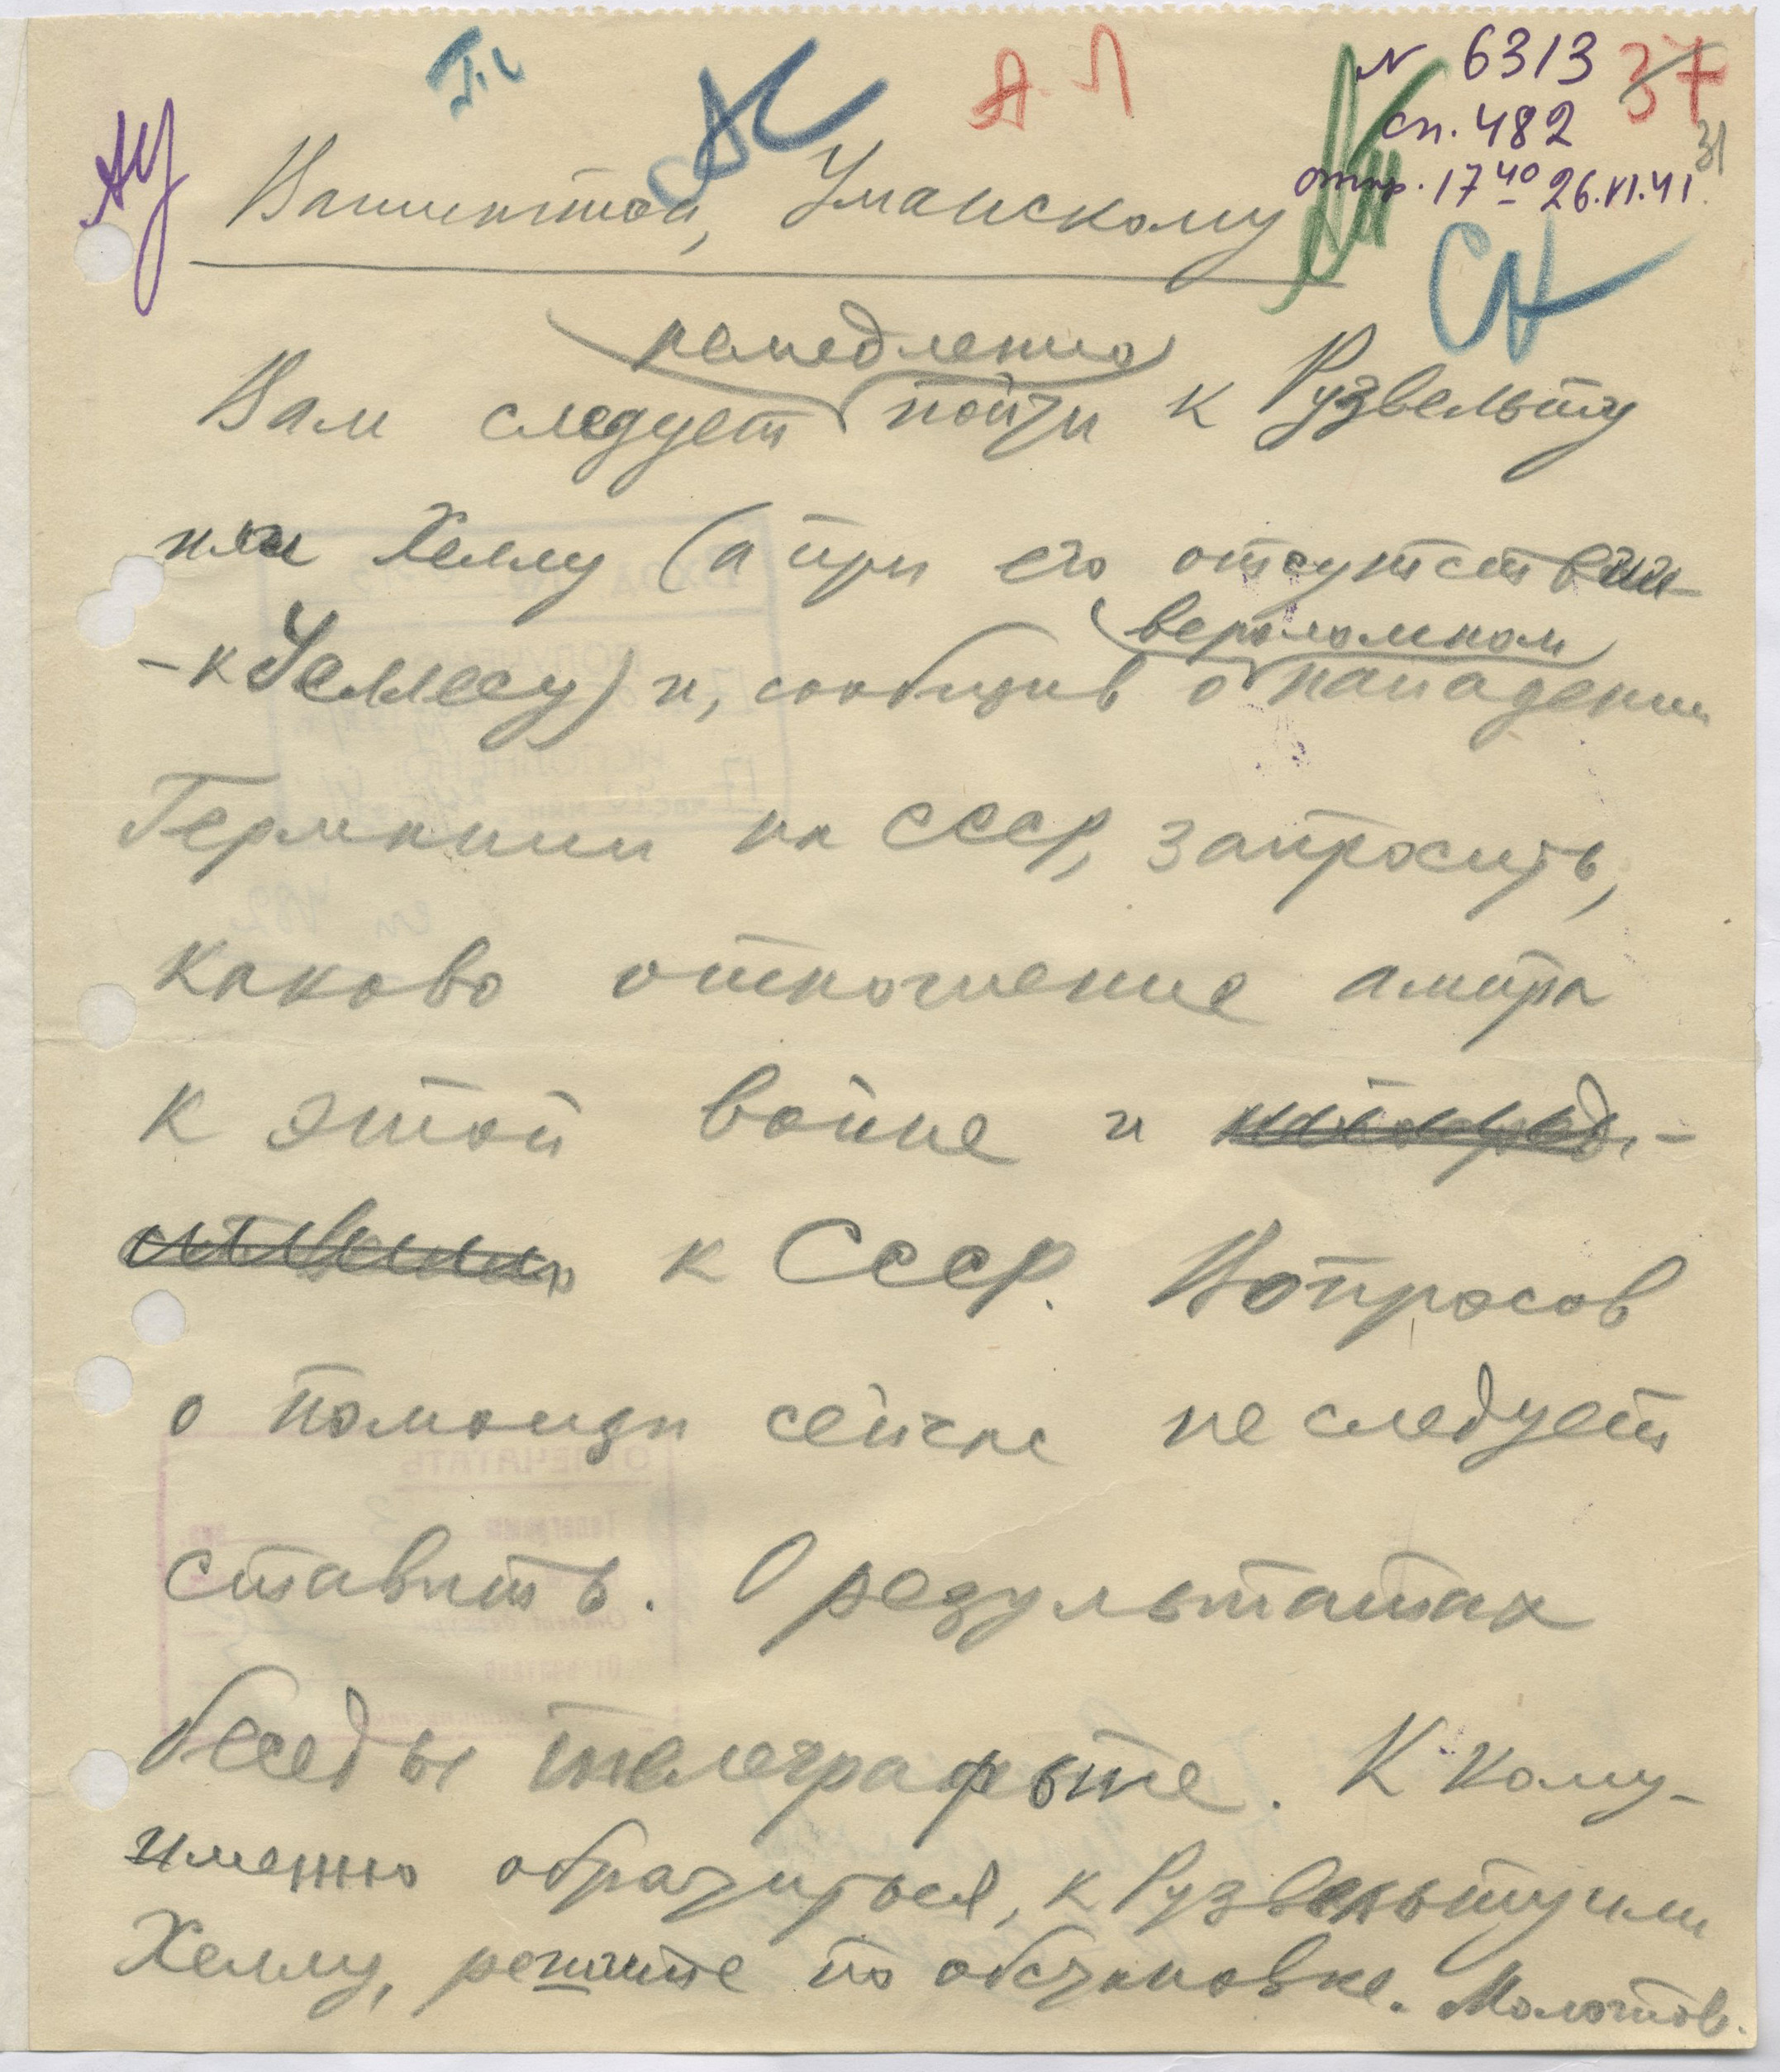 N 6313 37
сп. 482
31
отпр. 17 40 26.VI.41
Вашингтон, Уманскому
немедленно
Вам следует пойти к Рузвельту
или Хеллу (а при его отсутствии –
вероломном
– к Уеллесу) и, сообщив о нападении
Германии на СССР, запросить,
каково отношение ампра
к этой войне и
к СССР. Вопросов
о помощи сейчас не следует
ставить. О результатах
беседы телеграфьте. К кому-
именно обратиться, к Рузвельту или
Хеллу, решите по обстановке. Молотов.